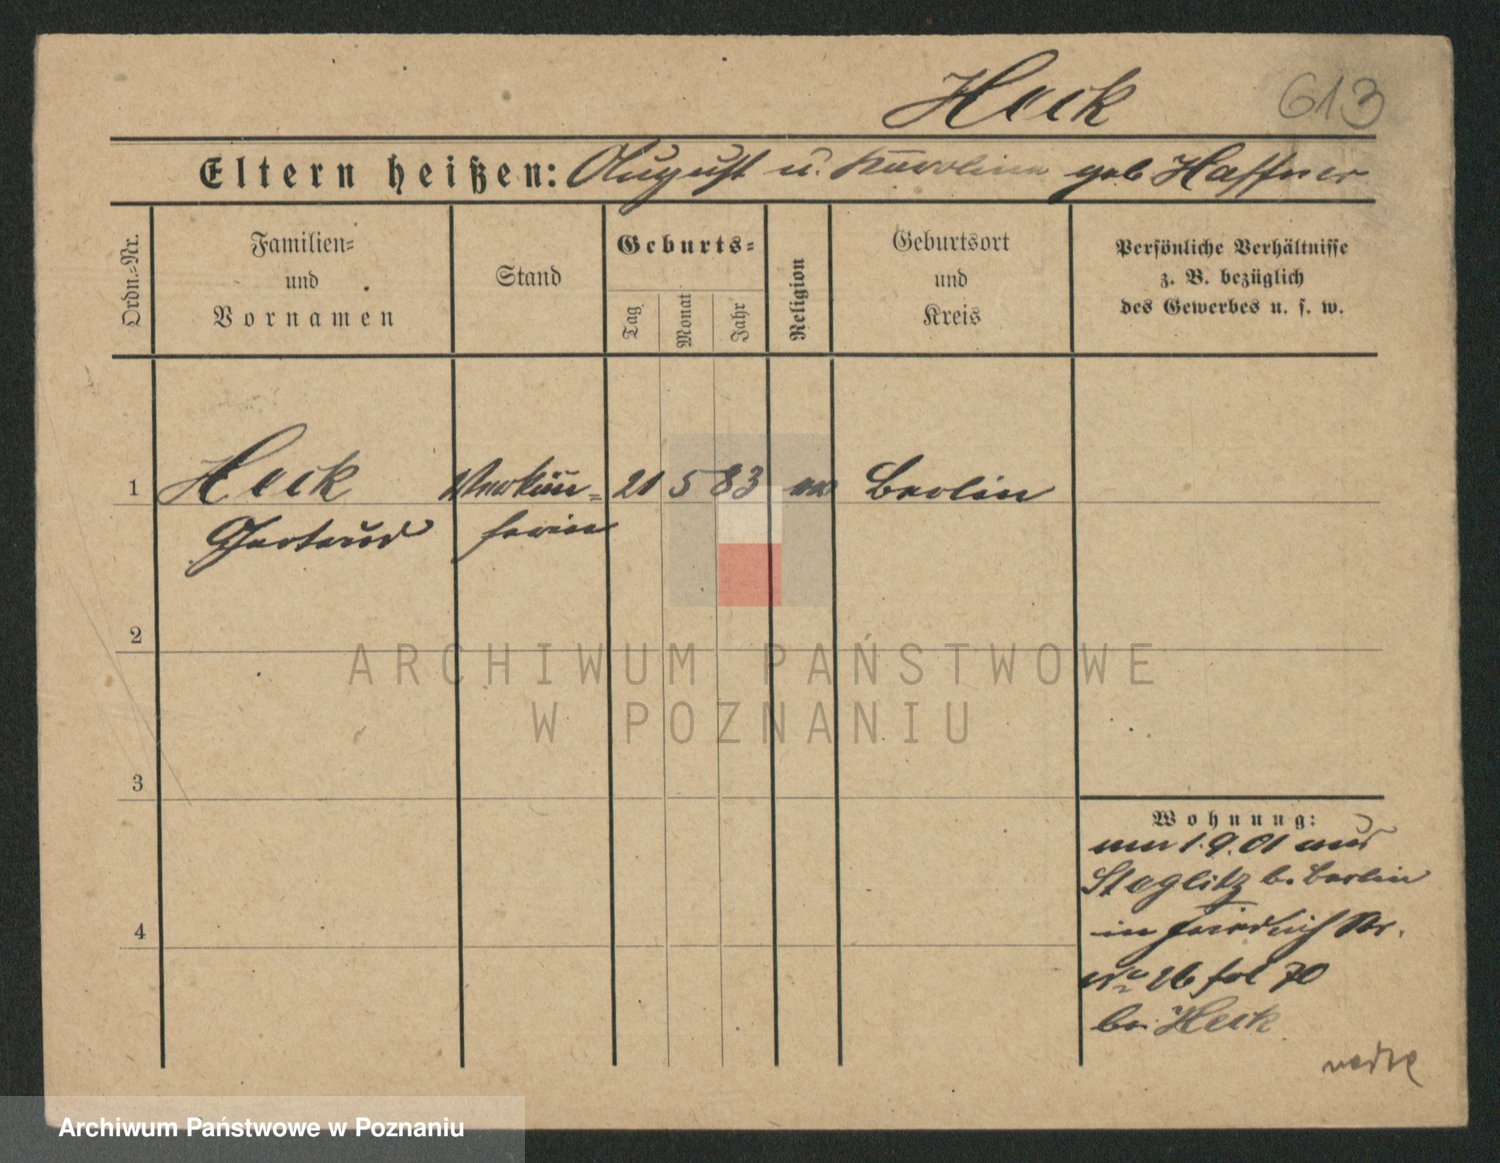 Heck 613
Eltern heißen: August u. Karoline geb Haffner
Ordn.-Nr.
Familien-
und
Vornamen
Stand
Geburts-
Tag
Monat
Jahr
Religion
Geburtsort
und
Kreis
Persönliche Verhältnisse
z. B. bezüglich
des Gewerbes u. s. w.
1 Heck Verkäu- 21 5 83 ev Berlin
Gertrud ferin
2
3
4
Wohnung:
am 1.9.01 aus
Steglitz b. Berlin
in Friedrich Str.
No 26 fol 70
bei Heck
ARCHIWUM PAŃSTWOWE
W POZNANIU
Archiwum Państwowe w Poznaniu